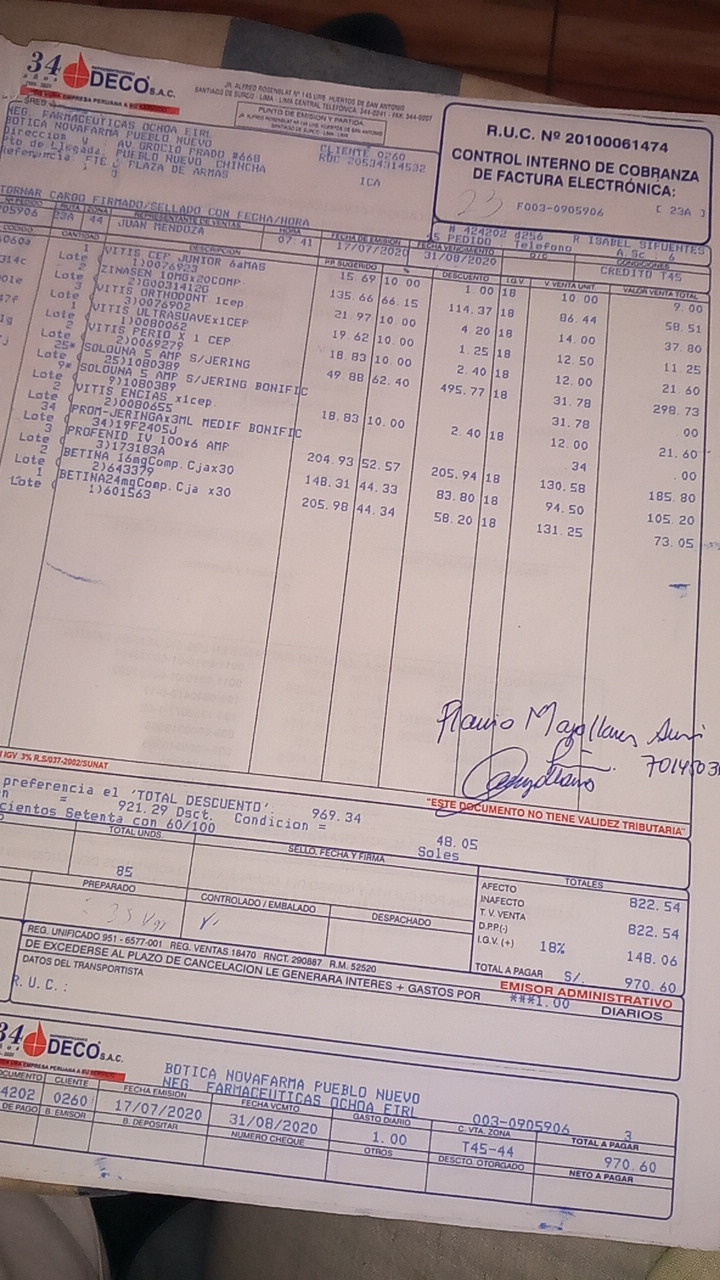 34
años
DECO S.A.C.
UNA EMPRESA PERUANA A SU SERVICIO
JR. ALFREDO ROSENBLAT Nº 145 URB. HUERTOS DE SAN ANTONIO
SANTIAGO DE SURCO - LIMA - LIMA CENTRAL TELEFÓNICA: 344-0241 - FAX: 344-0207
PUNTO DE EMISIÓN Y PARTIDA
SANTIAGO DE SURCO - LIMA - LIMA
R.U.C. Nº 20100061474
CONTROL INTERNO DE COBRANZA
DE FACTURA ELECTRÓNICA:
23 F003-0905906 [ 23A ]
SRES.
NEG. FARMACEUTICAS OCHOA EIRL
BOTICA NOVAFARMA PUEBLO NUEVO
CLIENTE 0260
RUC 20534314532
AV GROCIO PRADO #660
PUEBLO NUEVO CHINCHA
ICA
PLAZA DE ARMAS
TORNAR CARGO FIRMADO/SELLADO CON FECHA/HORA
# 424202 d256 R ISABEL SIFUENTES
PEDIDO Telefono A.Sc : 6
Nº PEDIDO RUTA ZONA REPRESENTANTE DE VENTAS HORA FECHA DE EMISION FECHA VENCIMIENTO O/C CONDICIONES
05906 23A 44 JUAN MENDOZA 07:41 17/07/2020 31/08/2020 CREDITO T45
CODIGO CANTIDAD DESCRIPCION PP SUGERIDO % DESCUENTO I.G.V. V. VENTA UNIT. VALOR VENTA TOTAL
1 VITIS CEP JUNIOR 6aMAS 15.69 10.00 1.00 18 10.00 9.00
Lote 1)0076923
2 ZINASEN 10MGx20COMP. 135.66 66.15 114.37 18 86.44 58.51
Lote 2)G00314126
3 VITIS ORTHODONT 1cep 21.97 10.00 4.20 18 14.00 37.80
Lote 3)0076902
1 VITIS ULTRASUAVEx1CEP 19.62 10.00 1.25 18 12.50 11.25
Lote 1)0080062
2 VITIS PERIO X 1 CEP 18.83 10.00 2.40 18 12.00 21.60
Lote 2)0069279
25* SOLOUNA 5 AMP S/JERING 49.88 62.40 495.77 18 31.78 298.73
Lote 25)1080389
9* SOLOUNA 5 AMP S/JERING BONIFIC 31.78 .00
Lote 9)1080389
2 VITIS ENCIAS x1cep 18.83 10.00 2.40 18 12.00 21.60
Lote 2)0080655
34 PROM-JERINGAx3ML MEDIF BONIFIC .34 .00
Lote 34)19F2405J
3 PROFENID IV 100x6 AMP 204.93 52.57 205.94 18 130.58 185.80
Lote 3)173183A
2 BETINA 16mgComp.Cjax30 148.31 44.33 83.80 18 94.50 105.20
Lote 2)643379
1 BETINA24mgComp.Cja x30 205.98 44.34 58.20 18 131.25 73.05
Lote 1)601563
IGV 3% R.S/037-2002/SUNAT
"ESTE DOCUMENTO NO TIENE VALIDEZ TRIBUTARIA"
preferencia el 'TOTAL DESCUENTO'. 969.34
= 921.29 Dsct. Condicion = 48.05
cientos Setenta con 60/100 Soles
TOTAL UNDS. SELLO, FECHA Y FIRMA TOTALES
85
PREPARADO CONTROLADO / EMBALADO DESPACHADO
AFECTO 822.54
INAFECTO
T.V. VENTA 822.54
D.P.P.(-)
I.G.V. (+) 18% 148.06
TOTAL A PAGAR S/. 970.60
REG. UNIFICADO 951 - 6577-001 REG. VENTAS 18470 RNCT. 290887 R.M. 52520
DE EXCEDERSE AL PLAZO DE CANCELACION LE GENERARA INTERES + GASTOS POR ***1.00 DIARIOS
EMISOR ADMINISTRATIVO
DATOS DEL TRANSPORTISTA
R.U.C.:
34
DECO S.A.C.
UNA EMPRESA PERUANA A SU SERVICIO
BOTICA NOVAFARMA PUEBLO NUEVO
NEG FARMACEUTICAS OCHOA EIRL
003-0905906 3
CLIENTE FECHA EMISION FECHA VCMTO GASTO DIARIO C. VTA. ZONA TOTAL A PAGAR
4202 0260 17/07/2020 31/08/2020 1.00 T45-44 970.60
DE PAGO B. EMISOR B. DEPOSITAR NUMERO CHEQUE OTROS DESCTO. OTORGADO NETO A PAGAR